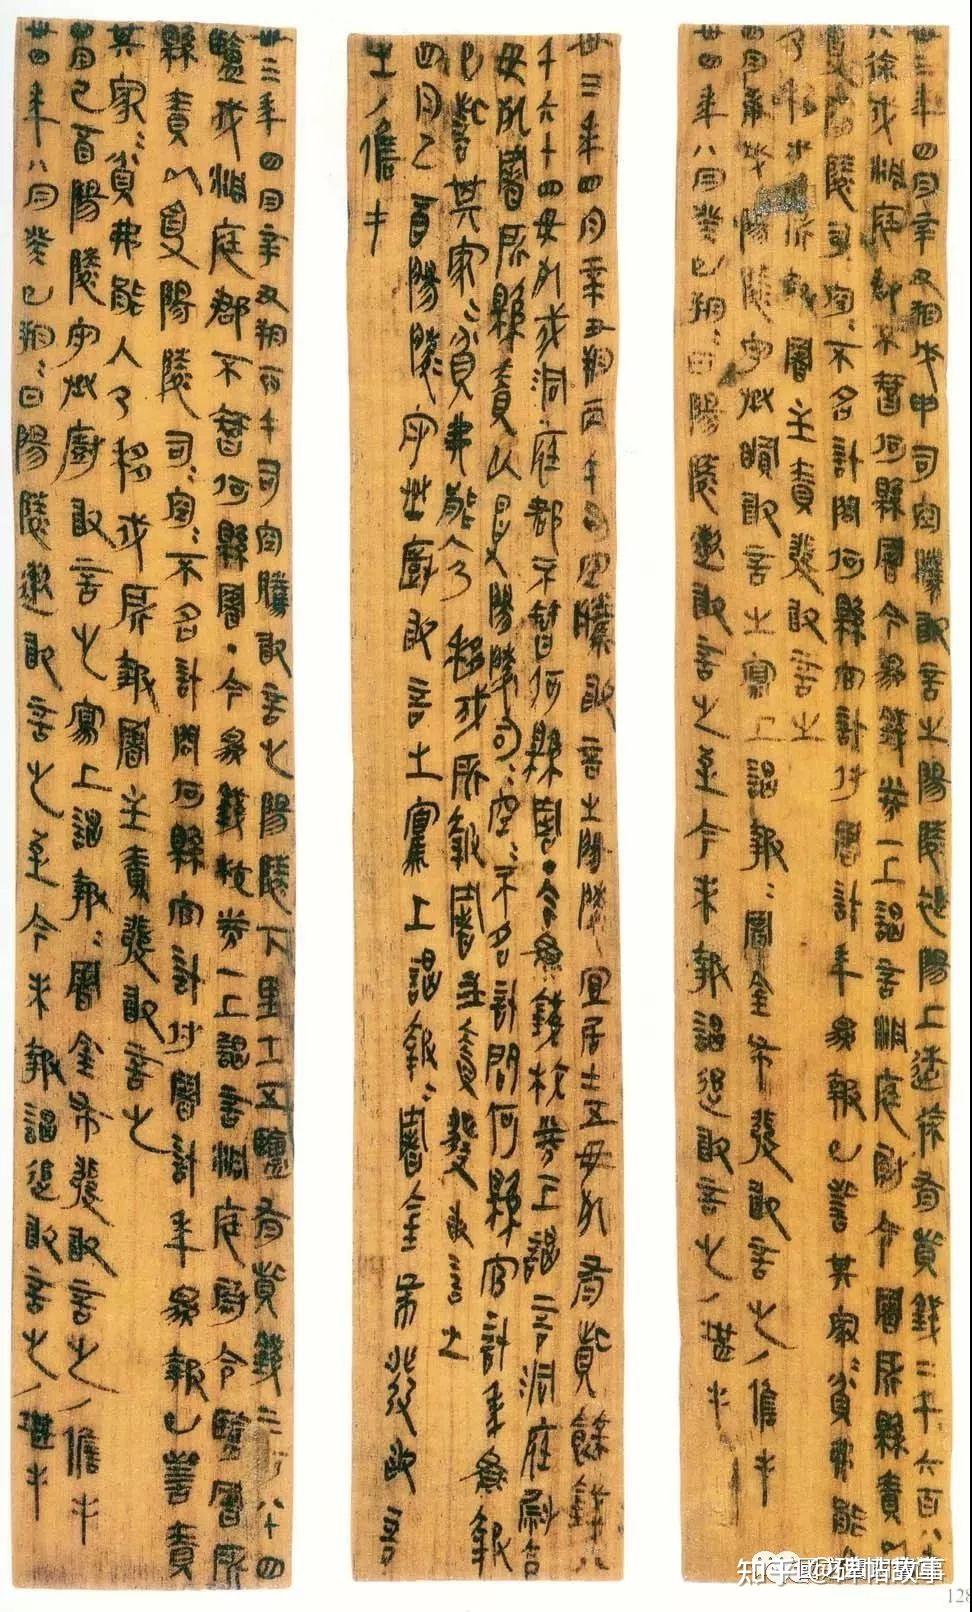 卅三年四月辛丑朔戊申司空騰敢言之陽陵褆陽上造徐有貲錢二千六百八十
八徐戍洞庭郡不智何縣署今為錢券一上謁言洞庭尉令署所縣責以
受陽陵司空=不名計問何縣官計付署計年為報已訾其家=貧弗能入
乃移戍所報署主責發敢言之
四月庚戌陽陵守丞瞫敢言之寫上謁報=署金布發敢言之/儋手
卅四年八月癸巳朔=日陽陵遬敢言之至今未報謁追敢言之/堪手
卅三年四月辛丑朔丙午司空騰敢言之陽陵宜居士五毋死有貲餘錢八
千六十四毋死戍洞庭郡不智何縣署·今為錢校券一上謁言洞庭尉令
毋死署所縣責以受陽陵司=空=不名計問何縣官計年為報
已訾其家=貧弗能入乃移戍所報署主責發敢言之
四月己酉陽陵守丞廚敢言之寫上謁報=署金布發敢言
之/儋手
卅三年四月辛丑朔丙午司空騰敢言之陽陵下里士五鹽有貲錢三百八十四
鹽戍洞庭郡不智何縣署·今為錢校券一上謁言洞庭尉令鹽署所
縣責以受陽陵司=空=不名計問何縣官計付署計年為報已訾責
其家=貧弗能入乃移戍所報署主責發敢言之
四月己酉陽陵守丞廚敢言之寫上謁報=署金布發敢言之/儋手
卅四年八月癸巳朔=日陽陵遬敢言之至今未報謁追敢言之/堪手
知乎 @碑帖故事
128